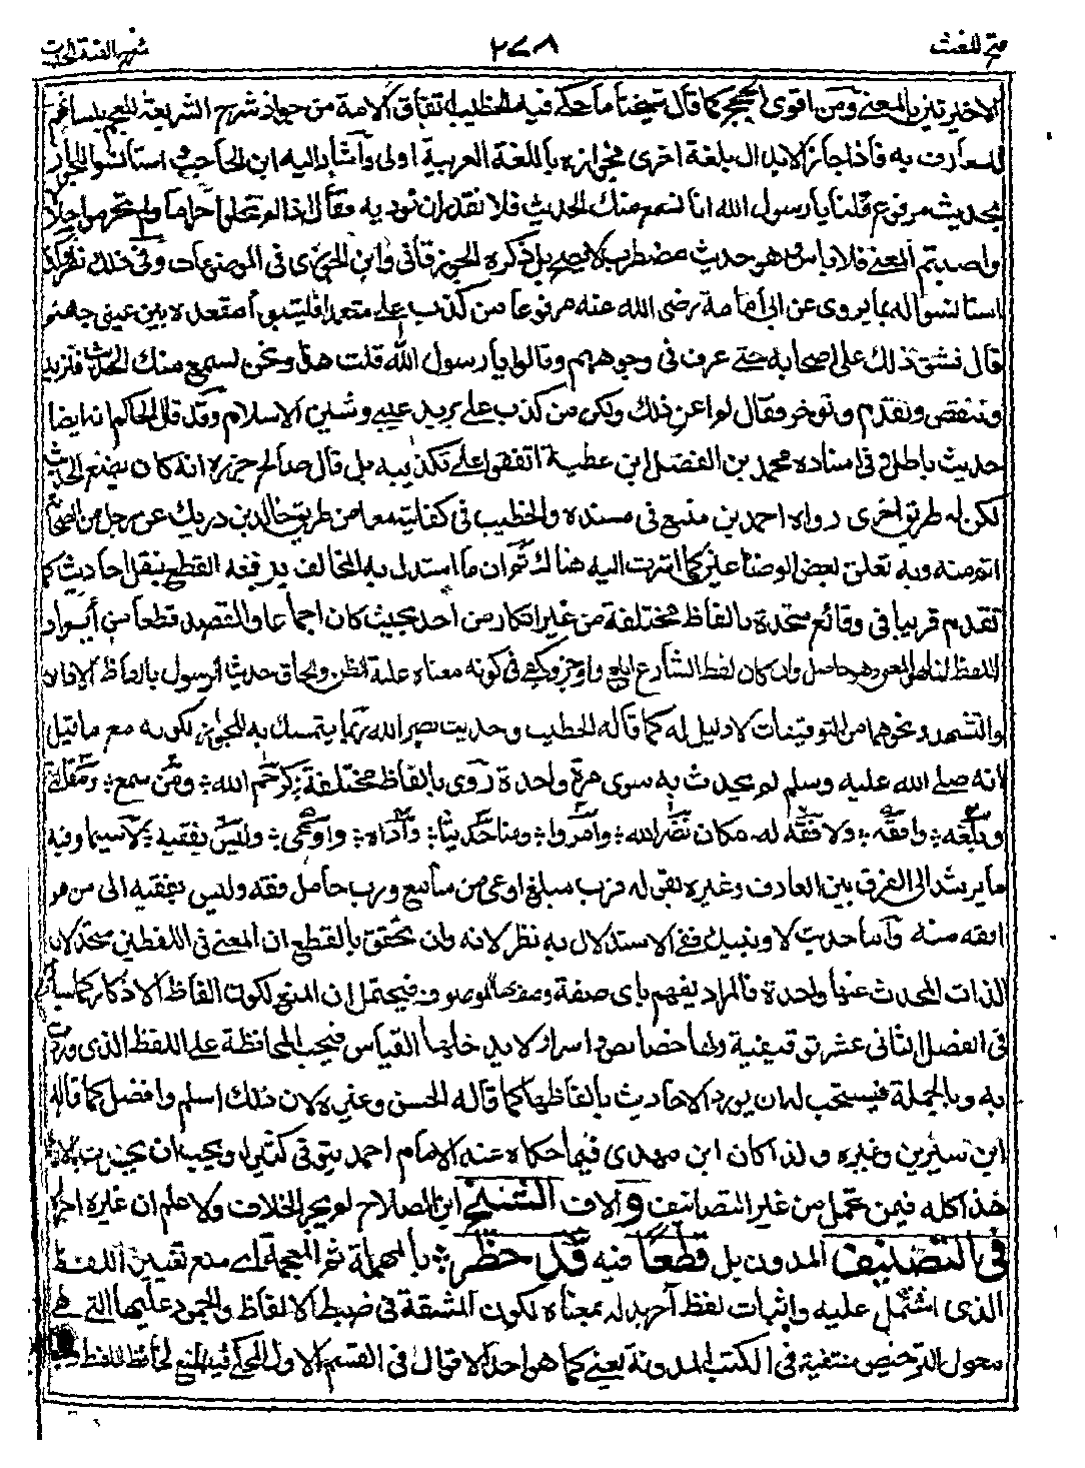 فتح المغيث ٢٧٨ شرح الفية الحديث
الاخيرتين بالمعنى ومن اقوى الحجج كما قال شيخنا ما حكى فيه الخطيب اتفاق الامة من جواز شرح الشريعة للعجم بلسانهم
للعارف به فاذا جاز الابدال بلغة اخرى فجوازه باللغة العربية اولى واشار اليه ابن الحاجب استانسوا للجواز
بحديث مرفوع قلنا يا رسول الله انا نسمع منك الحديث فلا نقدر ان نؤديه فقال اذا لم تحلوا حراما ولم تحرموا حلالا
واصبتم المعنى فلا باس وهو حديث مضطرب لا يصح بل ذكره الجوزقاني وابن الجوزي في الموضوعات وفي ذلك نظر وكذا
استانسوا له بما يروى عن ابي امامة رضى الله عنه مرفوعا من كذب علي متعمدا فليتبوأ مقعده بين عيني جهنم
قال فشق ذلك على اصحابه حتى عرف في وجوههم وقالوا يا رسول الله قلت هذا ونحن نسمع منك الحديث فنزيد
وننقص ونقدم ونوخر فقال لم اعن ذلك ولكن من كذب علي يريد عيبي وشين الاسلام وقد قال الحاكم انه ايضا
حديث باطل وفي اسناده محمد بن الفضل ابن عطية اتفقوا على تكذيبه بل قال صالح جزره انه كان يضع الحديث
لكن له طريق اخرى رواه احمد بن منيع في مسنده والخطيب في كفايته معا من طريق خالد بن دريك عن رجل من الصحابة
انتهى منه وبه تعلق بعض الوضاعين كما اشرت اليه هناك ثم ان ما استدل به المخالف يدفعه القطع بنقل احاديث كما
تقدم قريبا في وقائع متحدة بالفاظ مختلفة من غير انكار من احد بحيث كان اجماعا والقصد قطعا من ايراد
اللفظ انما هو المعنى وهو حاصل وان كان لفظ الشارع ابلغ واوجز وكفى في كونه معناه غلبة الظن والحاق حديث الرسول بالفاظ الاذان
والتشهد ونحوهما من التوقيفات لا دليل له كما قاله الخطيب وحديث نضر الله ربما يتمسك به للجواز لكونه مع ما قيل
انه صلى الله عليه وسلم لم يحدث به سوى مرة واحدة روى بالفاظ مختلفة كرحم الله ومن سمع ومقالتي
وبلغه وافقه ولا فقه له مكان نضر الله وامرءا ومنا حديثا واداه واوعى وليس بفقيه لاسيما وفيه
ما يرشد الى الفرق بين العارف وغيره بقوله فرب مبلغ اوعى من سامع ورب حامل فقه وليس بفقيه الى من هو
افقه منه واما حديث لا ونبيك ففي الاستدلال به نظر لانه وان تحقق بالقطع ان المعنى في اللفظين متحد لان
الذات المحدث عنها واحدة فالمراد يفهم باي صفة وصف بها الموصوف فيحتمل ان المنع لكون الفاظ الاذكار كما سيأتي
في الفصل الثاني عشر توقيفية ولها خصائص واسرار لا يدخلها القياس فيجب المحافظة على اللفظ الذي وردت
به وبالجملة فيستحب له ان يورد الاحاديث بالفاظها كما قاله الحسن وغيره لان ذلك اسلم وافضل كما قاله
ابن سيرين وغيره ولذا كان ابن مهدي فيما حكاه عنه الامام احمد يتوقى كثيرا ويحب ان يحدث بالالفاظ
هذا كله فيمن تحمل من غير التصانيف والاف الشيخ ابن الصلاح لم يجر الخلاف ولا اعلم ان غيره اجراه
في التصنيف المدون بل قطعا فيه قد حظر بالمهملة ثم المعجمة اي منع تغيير اللفظ
الذي اشتمل عليه واثبات لفظ آخر بدله بمعناه لكون المشقة في ضبط الالفاظ والجمود عليها التي هي
معول الترخيص منتفية في الكتب المدونة يعني كما هو احد الاقوال في القسم الاول المحكي فيه المنع لحافظ اللفظ